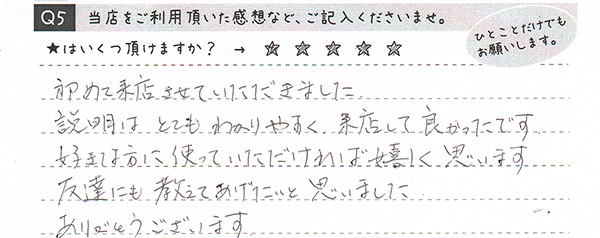 Q5 当店をご利用頂いた感想など、ご記入くださいませ。
★はいくつ頂けますか？ → ☆ ☆ ☆ ☆ ☆
ひとことだけでも
お願いします。
初めて来店させていただだきました
説明は とても わかりやすく 来店して 良かったです
好きな方に 使っていただければ 嬉しく 思います
友達にも 教えてあげたいと 思いました
ありがとうございます